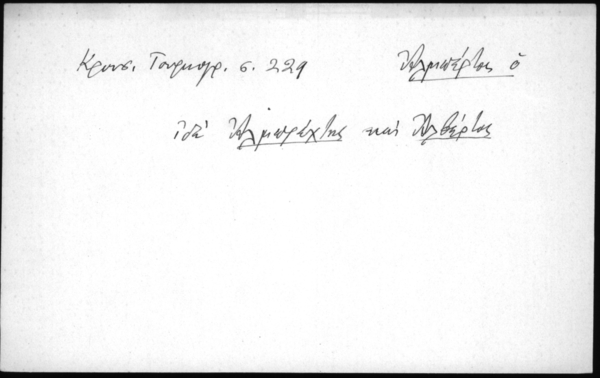 Κρουσ. Τουρκογρ. σ. 229 Ἀλμπέρτος ὁ
ἰδὲ Ἀλμπρέχτης καὶ Ἀλβέρτος